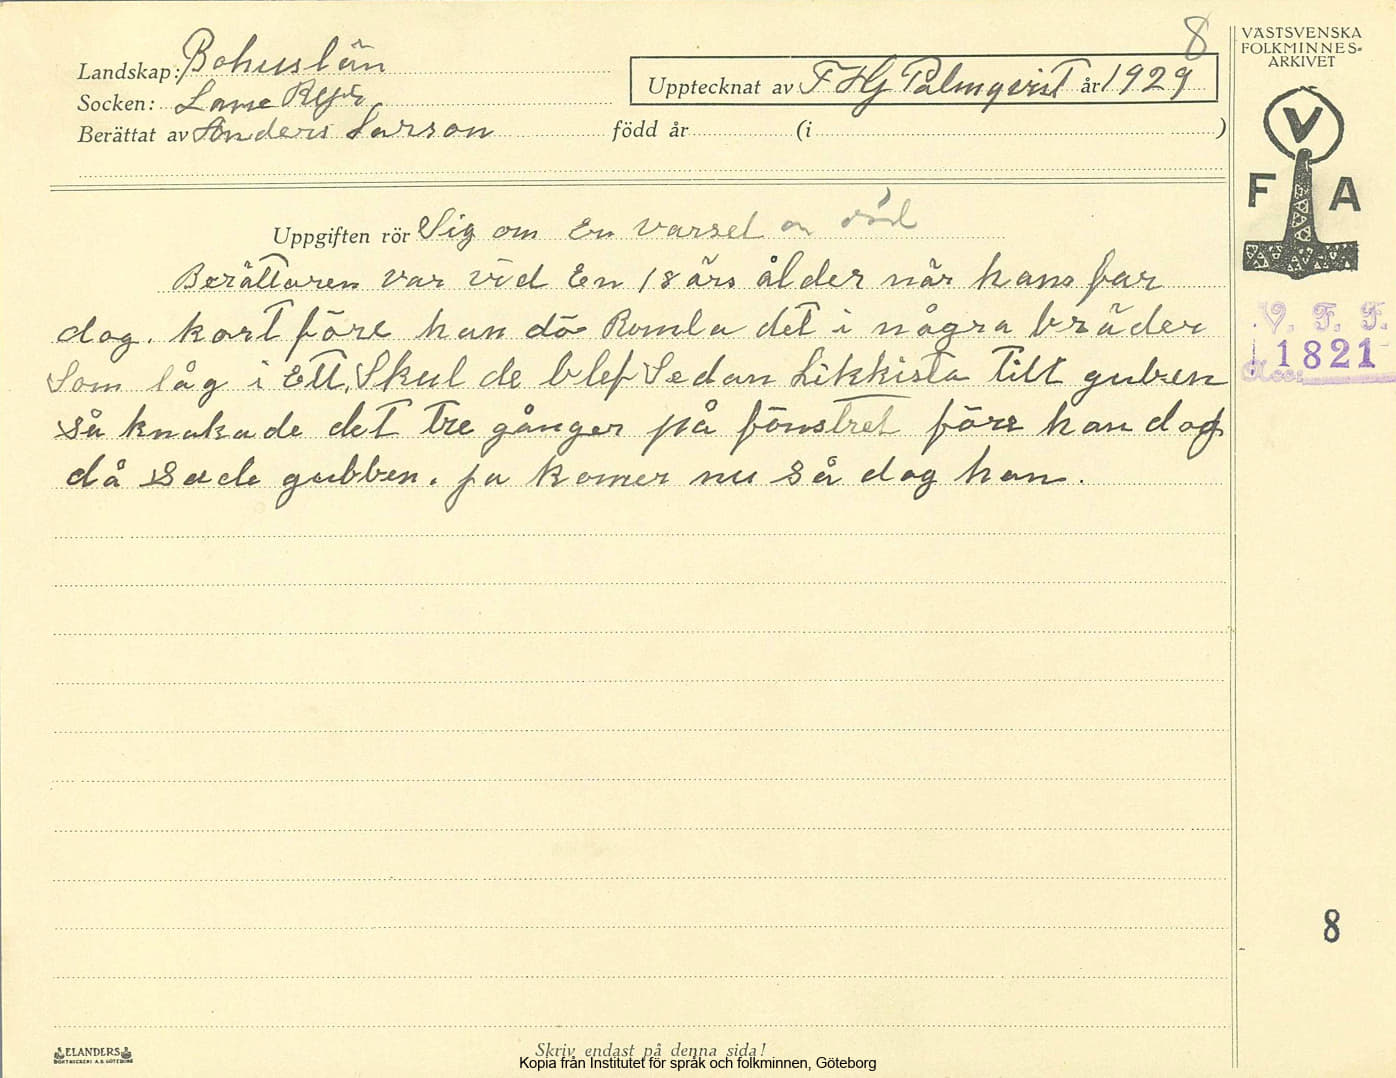 8
VÄSTSVENSKA
FOLKMINNES-
ARKIVET
Landskap: Bohuslän
Upptecknat av F Hj Palmqvist år 1929
Socken: Lane Ryr
Berättat av Anders Larson född år (i )
V
F A
Uppgiften rör Sig om En varsel om död
Berättaren var vid En 18 års ålder når hans far
dog. kort före han dö Romla det i några bräder
Som låg i Ett Skul de blef Sedan Likkista till guben
så knakade det tre gånger på fönstret före han dog
då sade gubben. ja komer nu så dog han.
V. F. F.
Acc: 1821
8
ELANDERS
BOKTRYCKERI A.B. GÖTEBORG
Skriv endast på denna sida!
Kopia från Institutet för språk och folkminnen, Göteborg